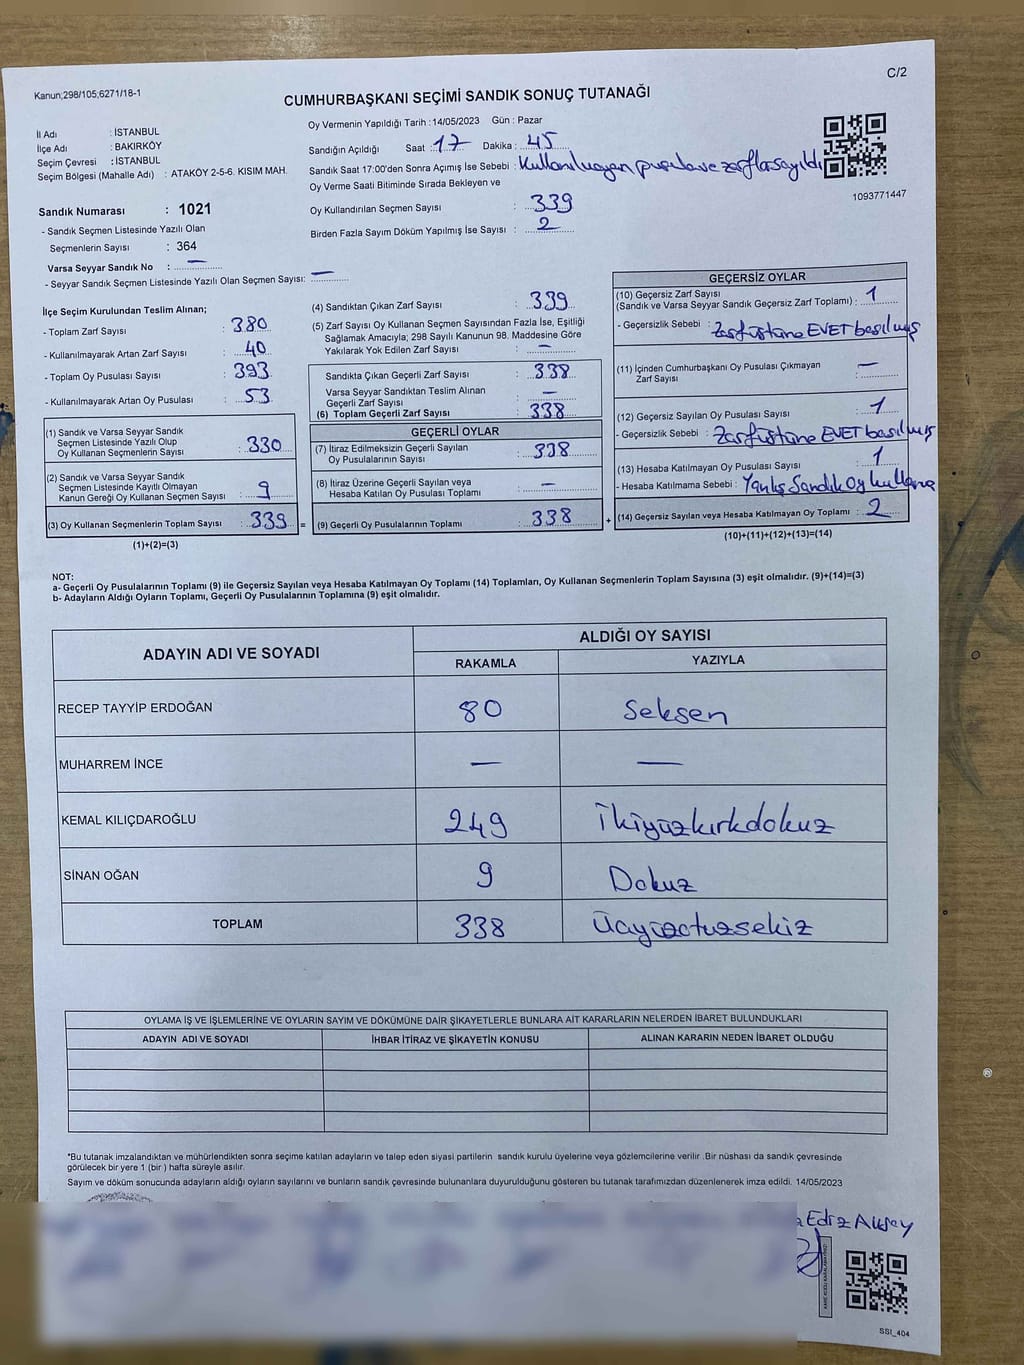 C/2
Kanun;298/105;6271/18-1
CUMHURBAŞKANI SEÇİMİ SANDIK SONUÇ TUTANAĞI
İl Adı : İSTANBUL
İlçe Adı : BAKIRKÖY
Seçim Çevresi : İSTANBUL
Seçim Bölgesi (Mahalle Adı) : ATAKÖY 2-5-6. KISIM MAH.
Oy Vermenin Yapıldığı Tarih :14/05/2023 Gün : Pazar
Sandığın Açıldığı Saat : 17 Dakika : 45
Sandık Saat 17:00'den Sonra Açımış İse Sebebi : Kullanılmayan pusula ve zarflar sayıldı
Oy Verme Saati Bitiminde Sırada Bekleyen ve
Oy Kullandırılan Seçmen Sayısı : 339
Birden Fazla Sayım Döküm Yapılmış İse Sayısı : 2
1093771447
Sandık Numarası : 1021
- Sandık Seçmen Listesinde Yazılı Olan
Seçmenlerin Sayısı : 364
Varsa Seyyar Sandık No : —
- Seyyar Sandık Seçmen Listesinde Yazılı Olan Seçmen Sayısı: —
İlçe Seçim Kurulundan Teslim Alınan;
- Toplam Zarf Sayısı : 380
- Kullanılmayarak Artan Zarf Sayısı : 40
- Toplam Oy Pusulası Sayısı : 393
- Kullanılmayarak Artan Oy Pusulası : 53
(1) Sandık ve Varsa Seyyar Sandık
Seçmen Listesinde Yazılı Olup
Oy Kullanan Seçmenlerin Sayısı : 330
(2) Sandık ve Varsa Seyyar Sandık
Seçmen Listesinde Kayıtlı Olmayan
Kanun Gereği Oy Kullanan Seçmen Sayısı : 9
(3) Oy Kullanan Seçmenlerin Toplam Sayısı : 339 =
(1)+(2)=(3)
(4) Sandıktan Çıkan Zarf Sayısı : 339
(5) Zarf Sayısı Oy Kullanan Seçmen Sayısından Fazla İse, Eşitliği
Sağlamak Amacıyla; 298 Sayılı Kanunun 98. Maddesine Göre
Yakılarak Yok Edilen Zarf Sayısı : —
Sandıkta Çıkan Geçerli Zarf Sayısı : 338
Varsa Seyyar Sandıktan Teslim Alınan
Geçerli Zarf Sayısı : —
(6) Toplam Geçerli Zarf Sayısı : 338
GEÇERLİ OYLAR
(7) İtiraz Edilmeksizin Geçerli Sayılan
Oy Pusulalarının Sayısı : 338
(8) İtiraz Üzerine Geçerli Sayılan veya
Hesaba Katılan Oy Pusulası Toplamı : —
(9) Geçerli Oy Pusulalarının Toplamı : 338 +
GEÇERSİZ OYLAR
(10) Geçersiz Zarf Sayısı
(Sandık ve Varsa Seyyar Sandık Geçersiz Zarf Toplamı) : 1
- Geçersizlik Sebebi : Zarf üstüne EVET basılmış
(11) İçinden Cumhurbaşkanı Oy Pusulası Çıkmayan
Zarf Sayısı : —
(12) Geçersiz Sayılan Oy Pusulası Sayısı : 1
- Geçersizlik Sebebi : Zarf üstüne EVET basılmış
(13) Hesaba Katılmayan Oy Pusulası Sayısı : 1
- Hesaba Katılmama Sebebi : Yanlış Sandık Oy kullanma
(14) Geçersiz Sayılan veya Hesaba Katılmayan Oy Toplamı : 2
(10)+(11)+(12)+(13)=(14)
NOT:
a- Geçerli Oy Pusulalarının Toplamı (9) ile Geçersiz Sayılan veya Hesaba Katılmayan Oy Toplamı (14) Toplamları, Oy Kullanan Seçmenlerin Toplam Sayısına (3) eşit olmalıdır. (9)+(14)=(3)
b- Adayların Aldığı Oyların Toplamı, Geçerli Oy Pusulalarının Toplamına (9) eşit olmalıdır.
ADAYIN ADI VE SOYADI
ALDIĞI OY SAYISI
RAKAMLA YAZIYLA
RECEP TAYYİP ERDOĞAN 80 Seksen
MUHARREM İNCE — —
KEMAL KILIÇDAROĞLU 249 İkiyüzkırkdokuz
SİNAN OĞAN 9 Dokuz
TOPLAM 338 Üçyüzotuzsekiz
OYLAMA İŞ VE İŞLEMLERİNE VE OYLARIN SAYIM VE DÖKÜMÜNE DAİR ŞİKAYETLERLE BUNLARA AİT KARARLARIN NELERDEN İBARET BULUNDUKLARI
ADAYIN ADI VE SOYADI İHBAR İTİRAZ VE ŞİKAYETİN KONUSU ALINAN KARARIN NEDEN İBARET OLDUĞU
*Bu tutanak imzalandıktan ve mühürlendikten sonra seçime katılan adayların ve talep eden siyasi partilerin sandık kurulu üyelerine veya gözlemcilerine verilir .Bir nüshası da sandık çevresinde
görülecek bir yere 1 (bir ) hafta süreyle asılır.
Sayım ve döküm sonucunda adayların aldığı oyların sayılarını ve bunların sandık çevresinde bulunanlara duyurulduğunu gösteren bu tutanak tarafımızdan düzenlenerek imza edildi. 14/05/2023
Ediz Aksoy
SSI_404